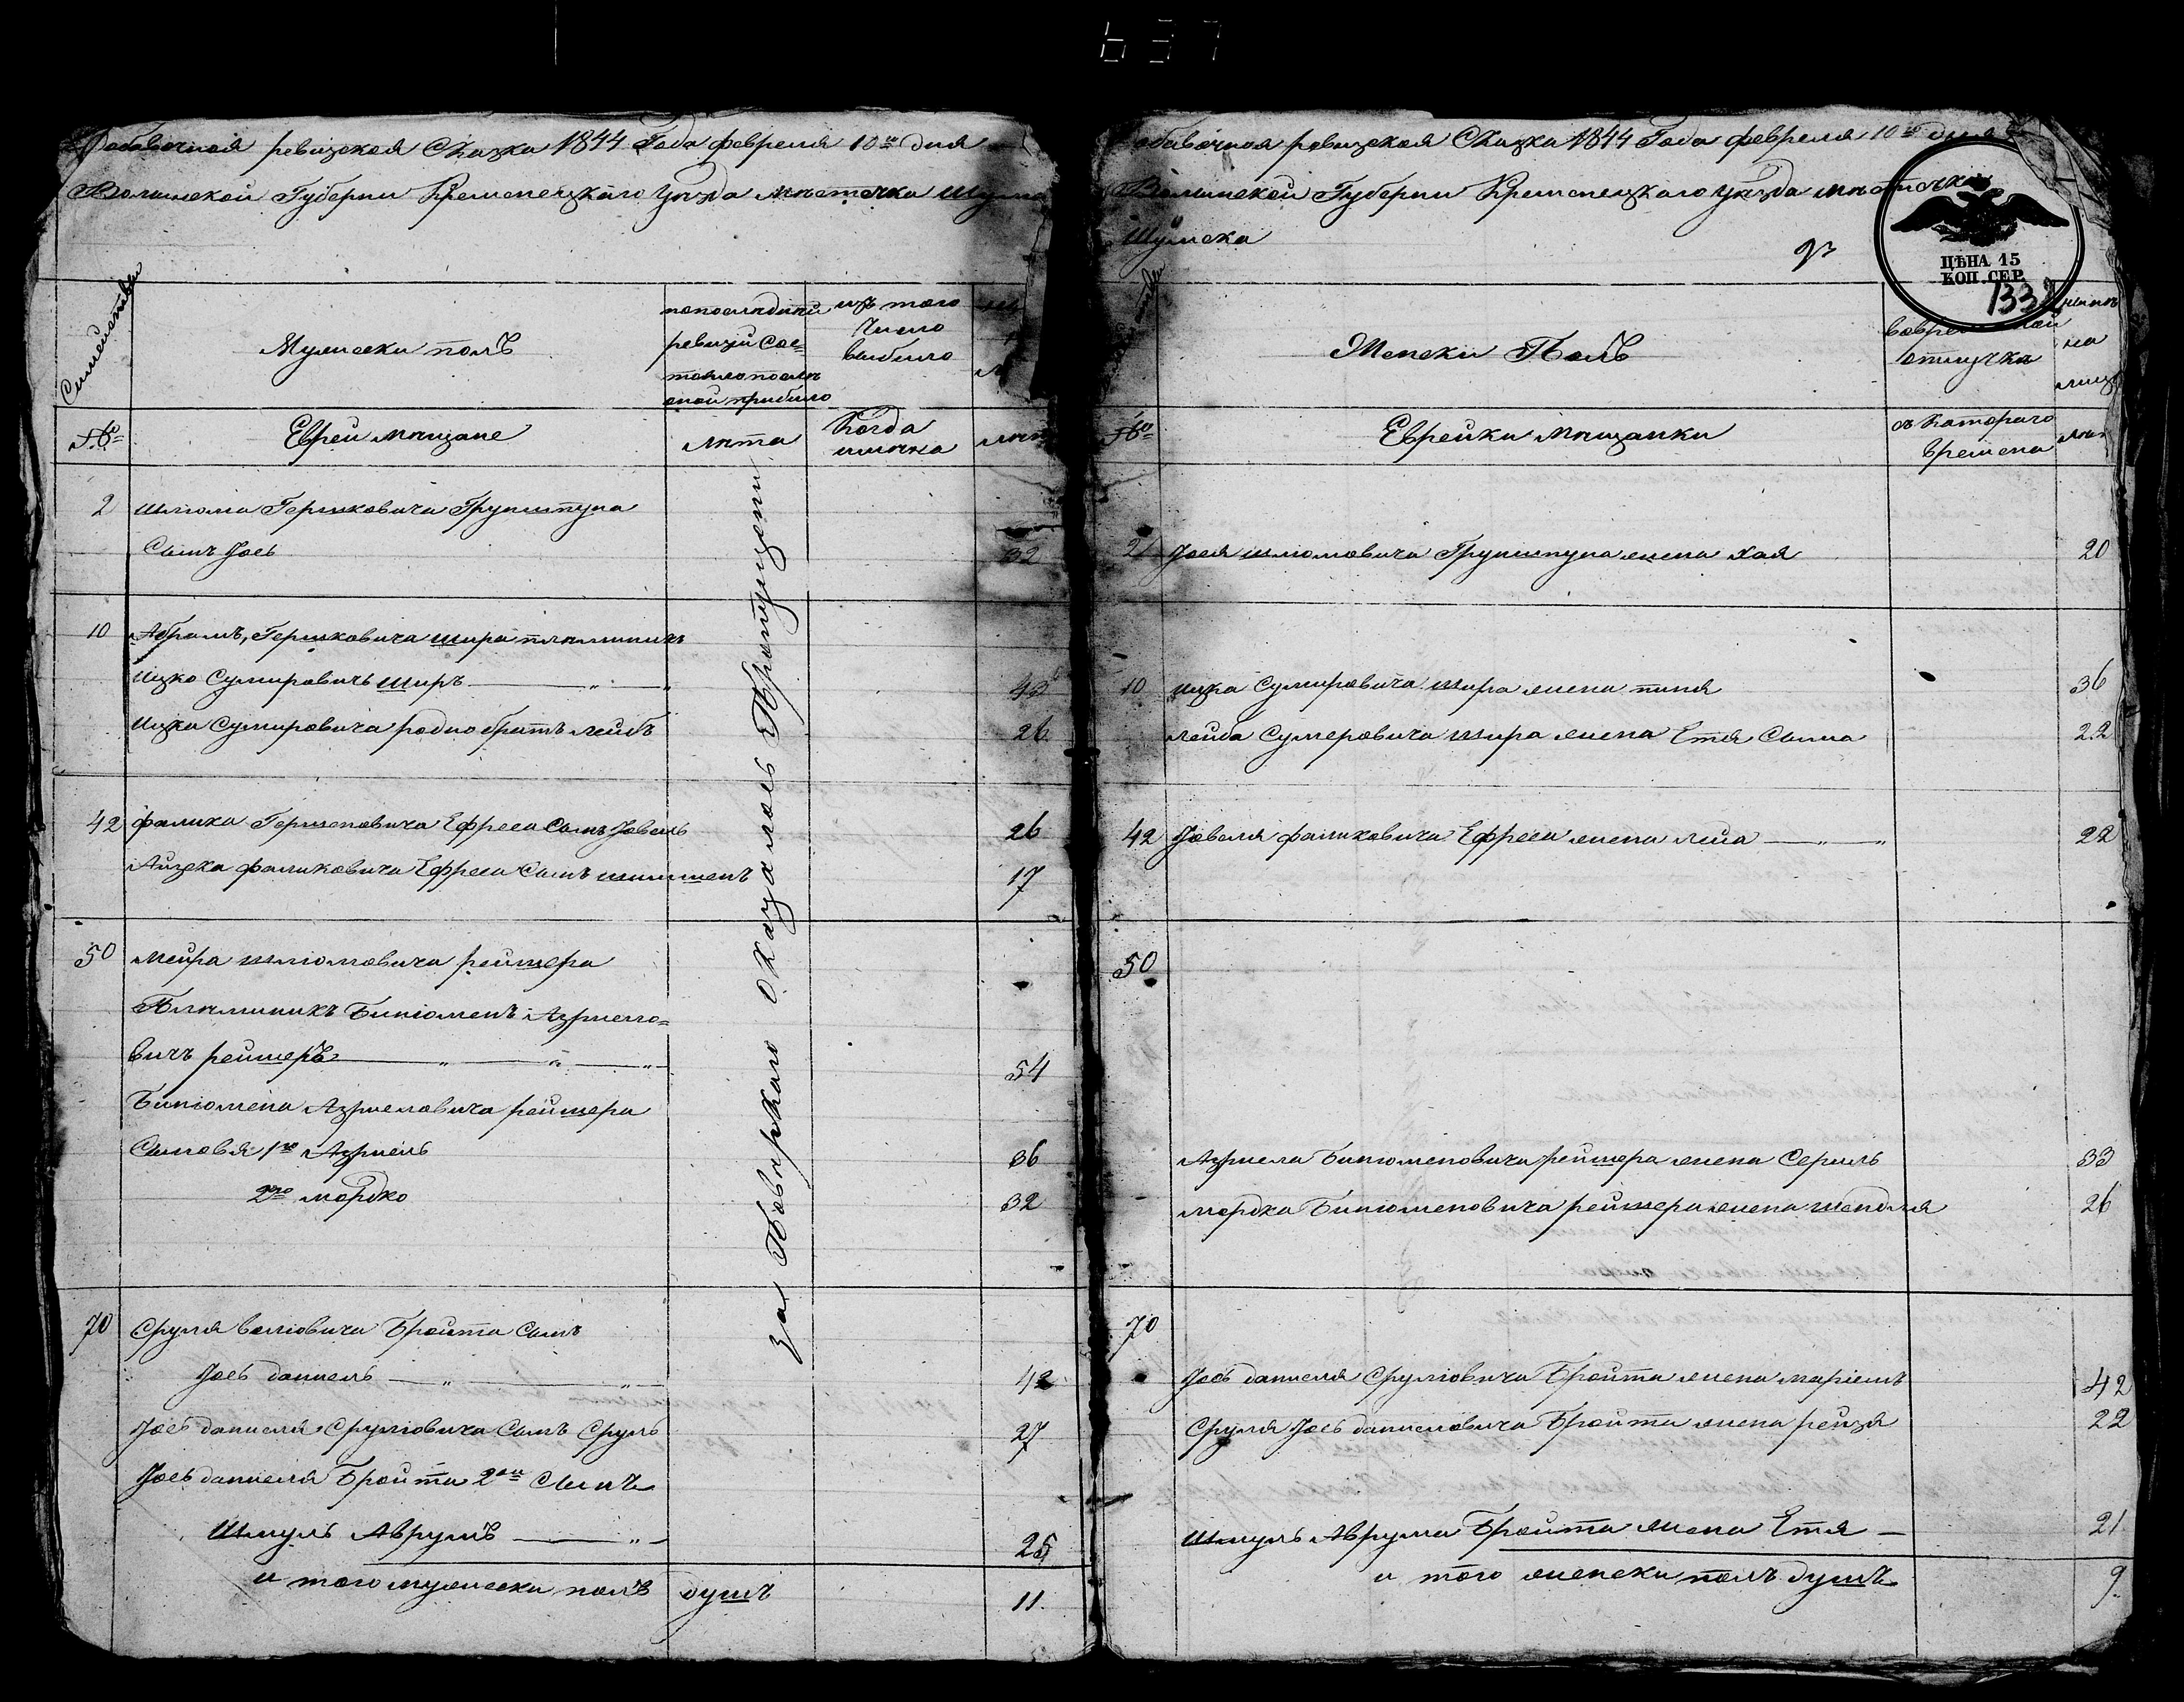 Добавочная ревизская Сказка 1844 Года февраля 10го дня
Волынской Губерни Кременецкаго уезда местечка Шумс
Семейства
Мужески полъ
попоследней
ревизи Сос=
тоялопосле
оной прибыло
изъ того
Число
выбыло
№
Евреи мещане
лета
Когда
именно
лет
за Поверкаю оказалось Пропущени
2 Шлюма Гершковича Грунштука
Сынъ Јось 32
10 Абрамъ, Гершковича шира племиникъ
Ицко Сумировичъ ширъ 43
Ицка Сумировича родно братъ лейбъ 26
42 фалика Гершеновича Ефреса Сынъ Јовель 26
Айзека фаликовича Ефреса Сынъ шимшенъ 17
50 Меира шлюмовича рейшера
Племиникъ Бинюменъ Азриело=
вичъ рейшеръ 54
Бинюмена Азриеловича рейшера
Сыновя 1й Азриель 36
2го мордко 32
70 Сруля Волковича Бройта Сынъ
Јось даниель 42
Јось даниеля Сруліовича Сынъ Сруль 27
Јось даниеля Бройта 2ой Сынъ
Шмуль Аврумъ 25
и того мужески полъ душъ 11.
Добавочная ревизская Сказка 1844 Года февраля 10го дня
Волынской Губерни Кременецкаго уезда местечка
Шумска
ЦѢНА 15
КОП. СЕР.
133
Женски Полъ
отлучке
на
лицо
№
Еврейки мещанки
съ Котораго
времена
2 Јося шлюмовича Грунштука жена хая 20
10 ицка Сумировича шира жена пиня 36
лейба Сумеровича шира жена Етя Сима 22
42 Јовеля фаликовича Ефреса жена леиа 22
50
Азриела Бинюменовича рейшера жена Серыль 33
мордка Бинюменовича рейшера жена шендля 26
70
Јось даниеля Сруліовича Бройта жена маріемъ 42
Сруля Јось даниеловича Бройта жена рейзя 22
Шмуль Аврума Бройта жена Етя 21
и того женски полъ душъ 9.